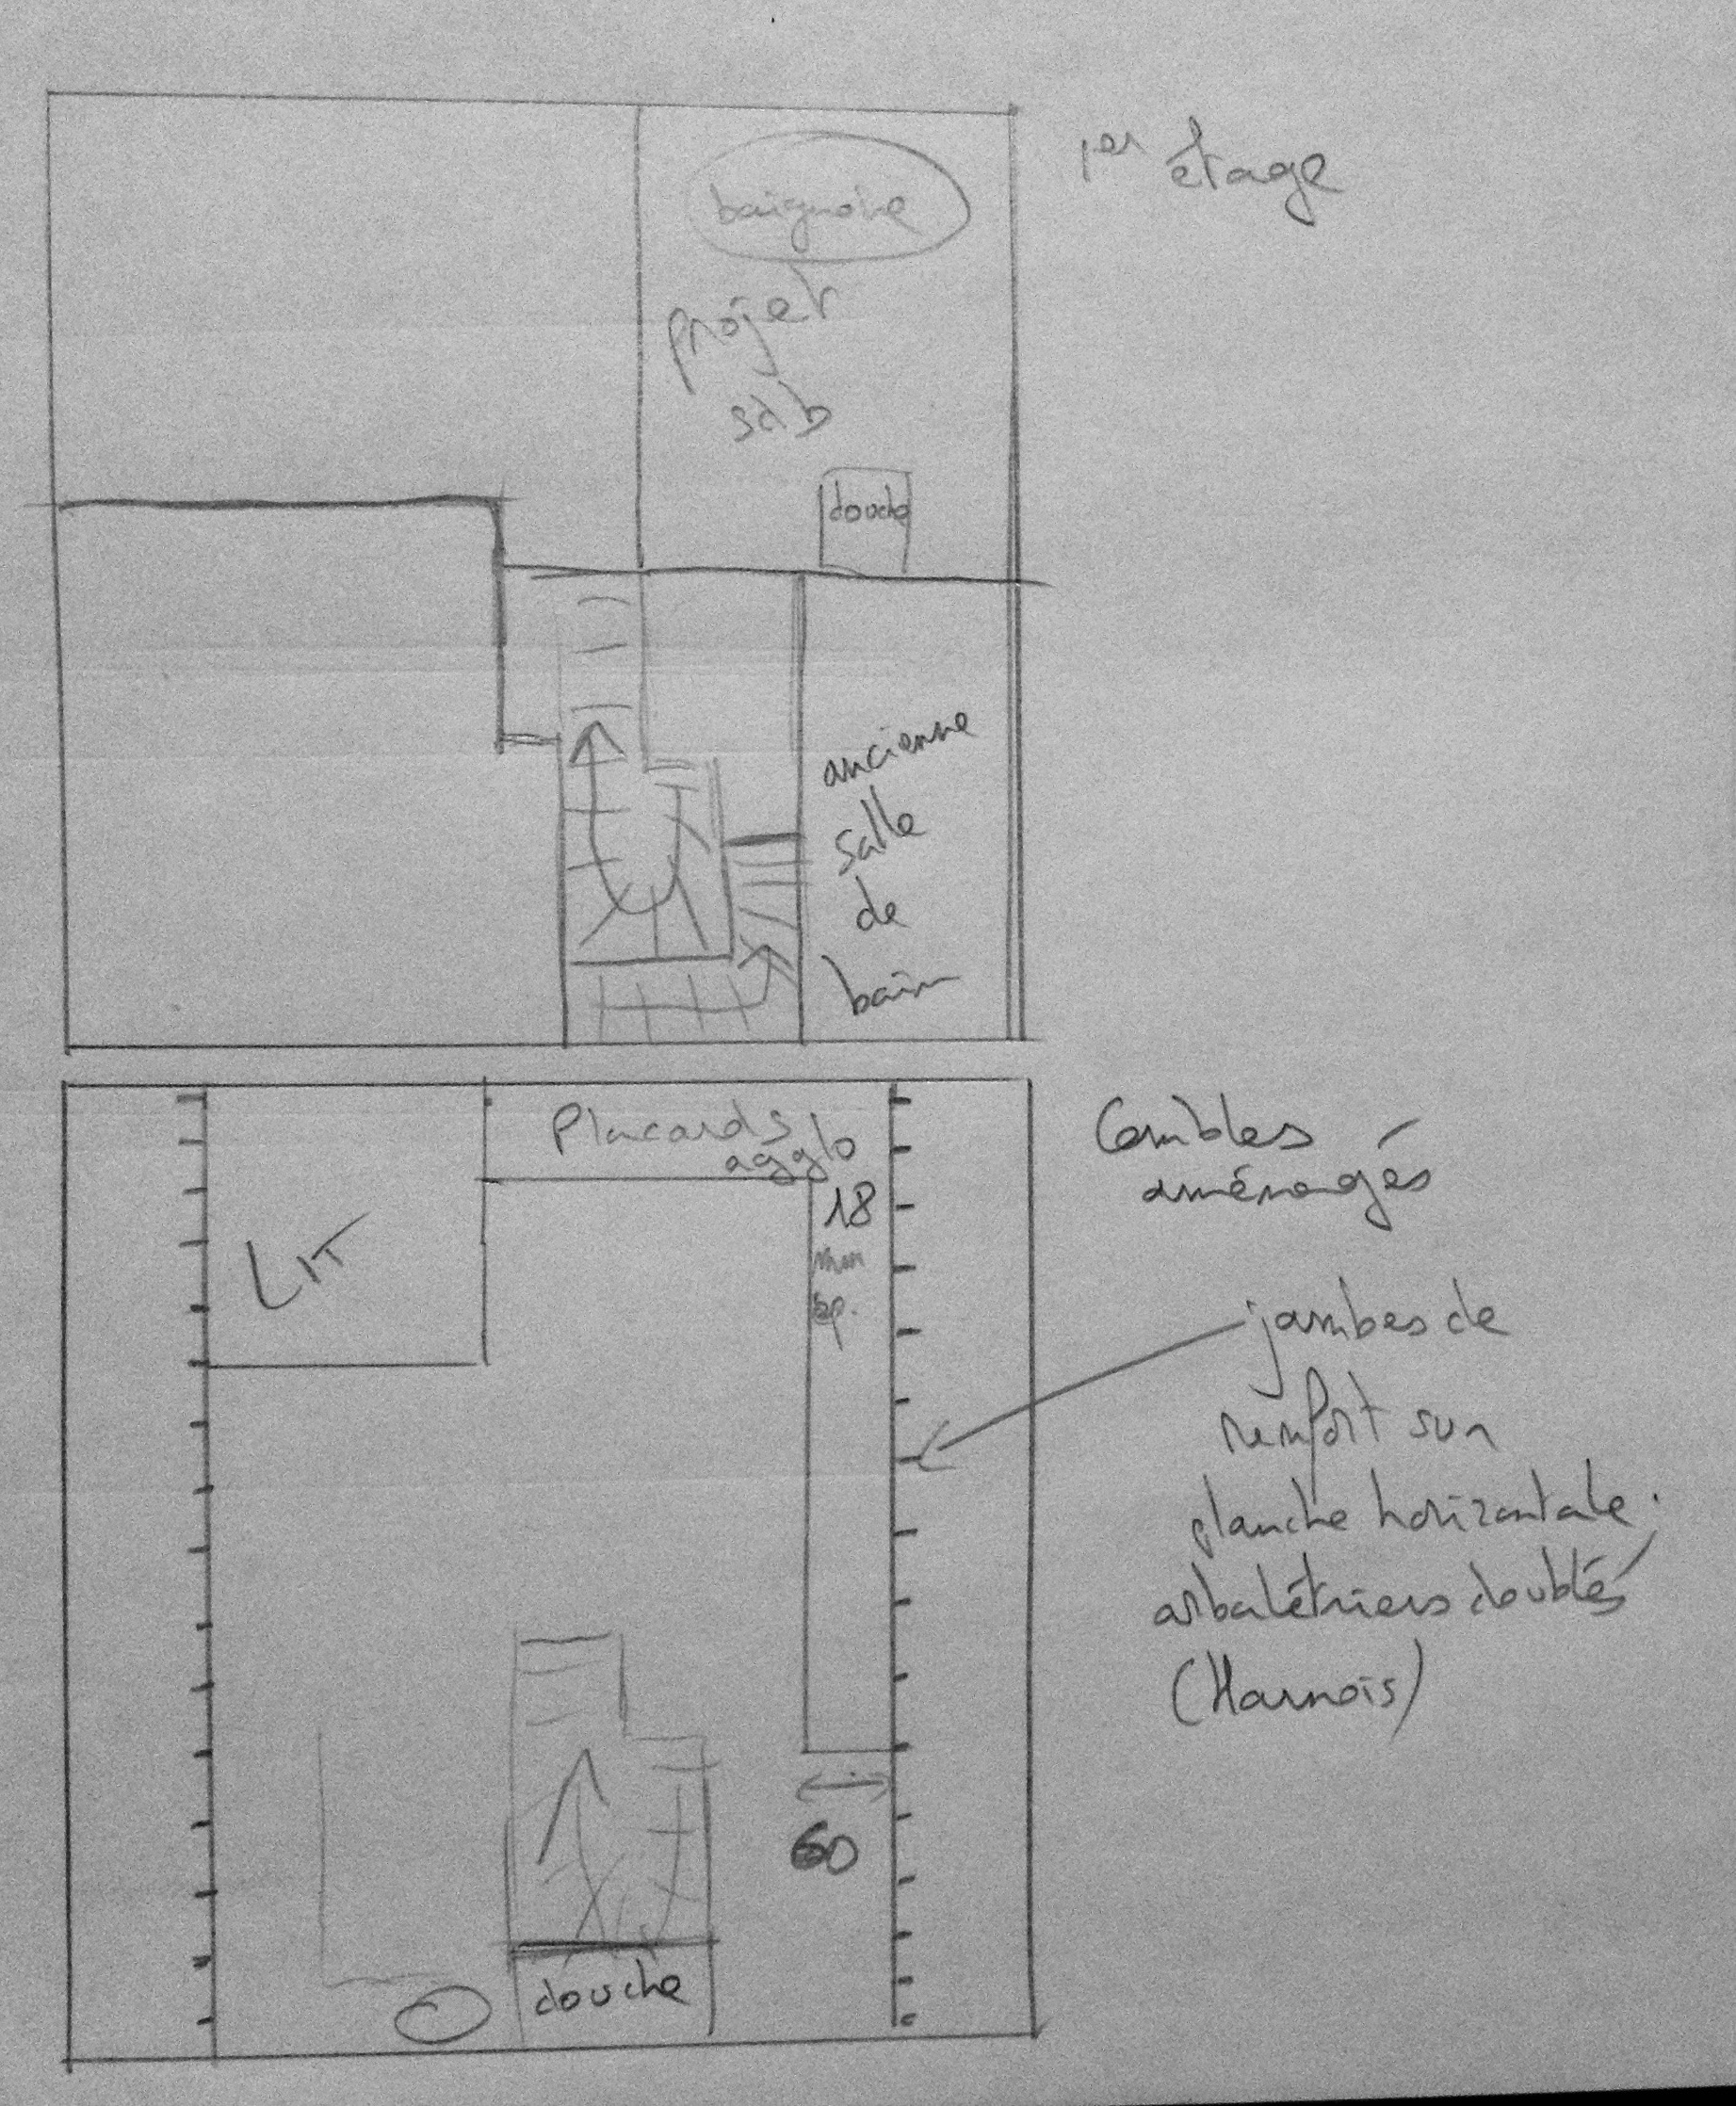 1er étage
baignoire
projet
sdb
douche
ancienne
salle
de
bain
Combles
aménagés
Placards
agglo
18
mm
ep.
LIT
jambes de
renfort sur
planche horizontale.
arbalétriers doublés
(Harnois)
60
douche